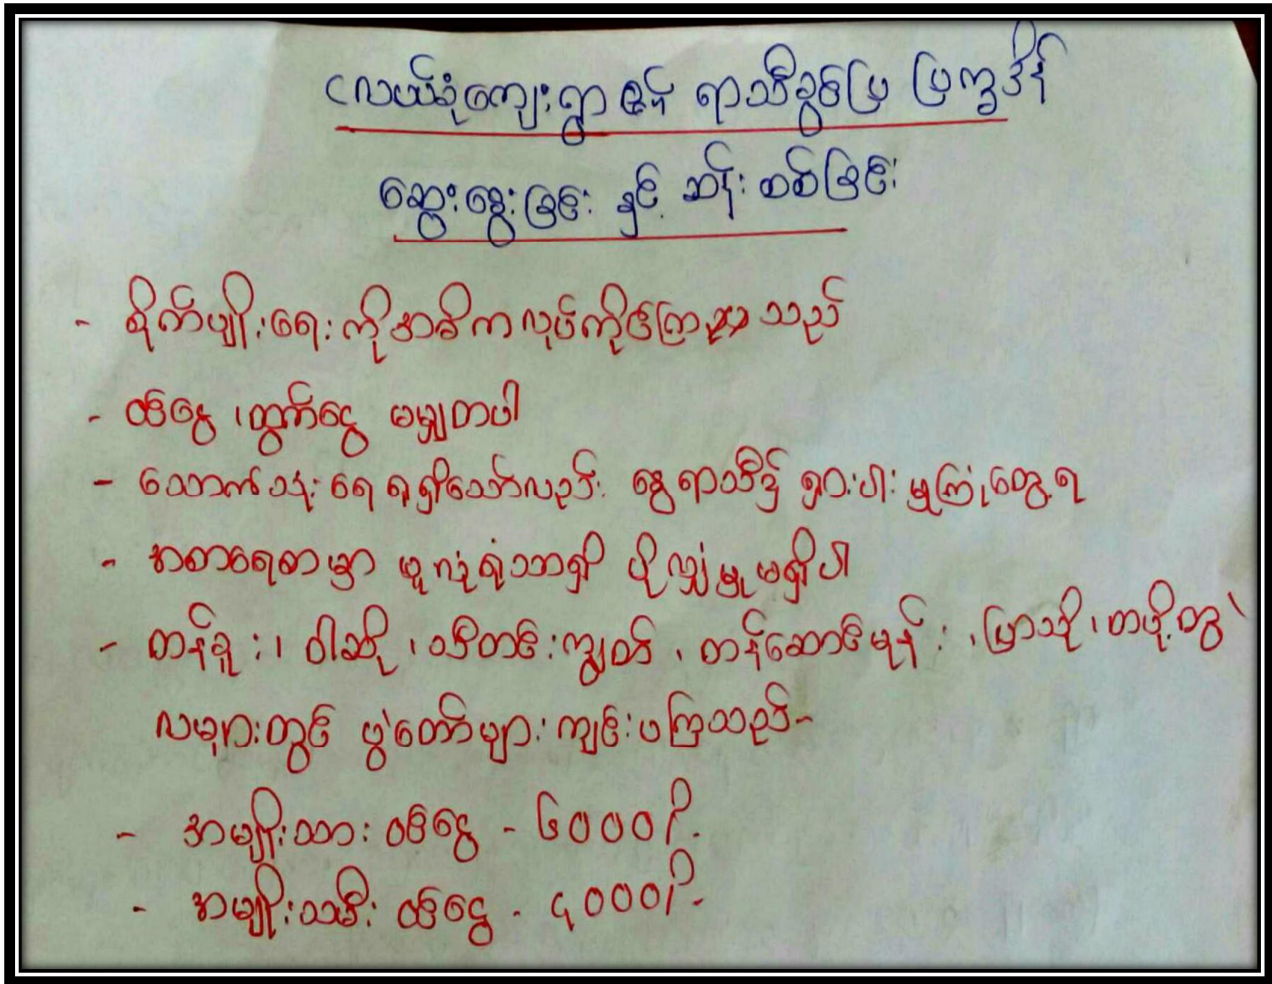 ငလယ်ဆုံကျေးရွာ၏ ရာသီခွင်ပြ ပြက္ခဒိန်
ဆွေးနွေးခြင်း နှင့် ဆန်းစစ်ခြင်း
- စိုက်ပျိုးရေးကိုအဓိကလုပ်ကိုင်ကြသည်
- ဝင်ငွေ ၊ထွက်ငွေ မမျှတပါ
- သောက်သုံးရေ ရရှိသော်လည်း နွေရာသီ၌ ရှားပါးမှုကြုံတွေ့ရ
- အစာရေစာမှာ ဖူလုံရုံသာရှိ ပိုလျှံမှုမရှိပါ
- တန်ခူး ၊ ဝါဆို ၊ သီတင်းကျွတ် ၊ တန်ဆောင်မုန်း ၊ပြာသို ၊တပို့တွဲ
လများတွင် ပွဲတော်များ ကျင်းပကြသည်-
- အမျိုးသား ဝင်ငွေ - ၆၀၀၀/-
- အမျိုးသမီး ဝင်ငွေ - ၎၀၀၀/-